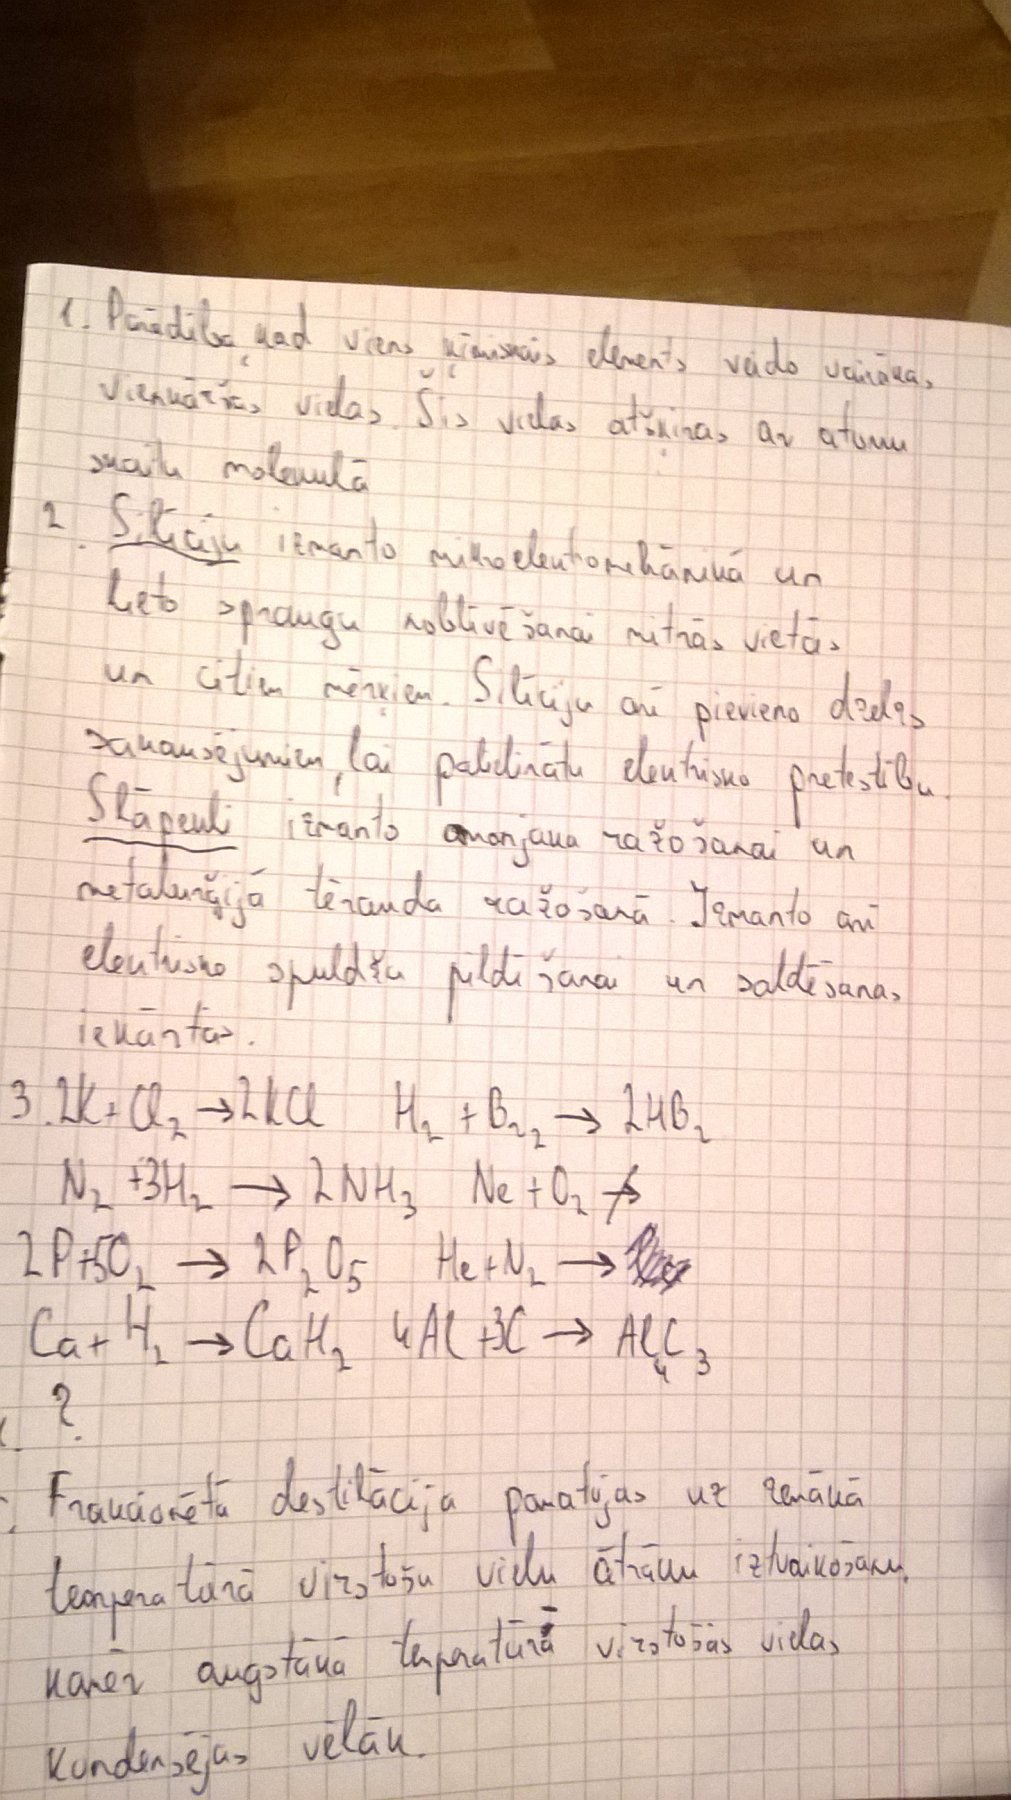 1. Parādība, kad viens ķīmiskais elements veido vairākas
vienkāršas vielas. Šīs vielas atšķiras ar atomu
skaitu molekulā
2. Silīciju izmanto mikroelektromehānikā un
lieto spraugu noblīvēšanai mitrās vietās
un citiem mērķiem. Silīciju arī pievieno dzelzs
sakausējumiem, lai palielinātu elektrisko pretestību.
Slāpekli izmanto amonjaka ražošanai un
metalurģijā tērauda ražošanā. Izmanto arī
elektrisko spuldžu pildīšanai un saldēšanas
iekārtās.
3. 2K + Cl₂ → 2KCl H₂ + Br₂ → 2HB₂
N₂ + 3H₂ → 2NH₃ Ne + O₂ ↛
2P + 5O₂ → 2P₂O₅ He + N₂ →
Ca + H₂ → CaH₂ 4Al + 3C → Al₄C₃
?
Frakcionētā destilācija pamatojas uz zemākā
temperatūrā virstošu vielu ātrāku iztvaikošanu,
kamēr augstākā temperatūrā virstošās vielas
kondensējas vēlāk.